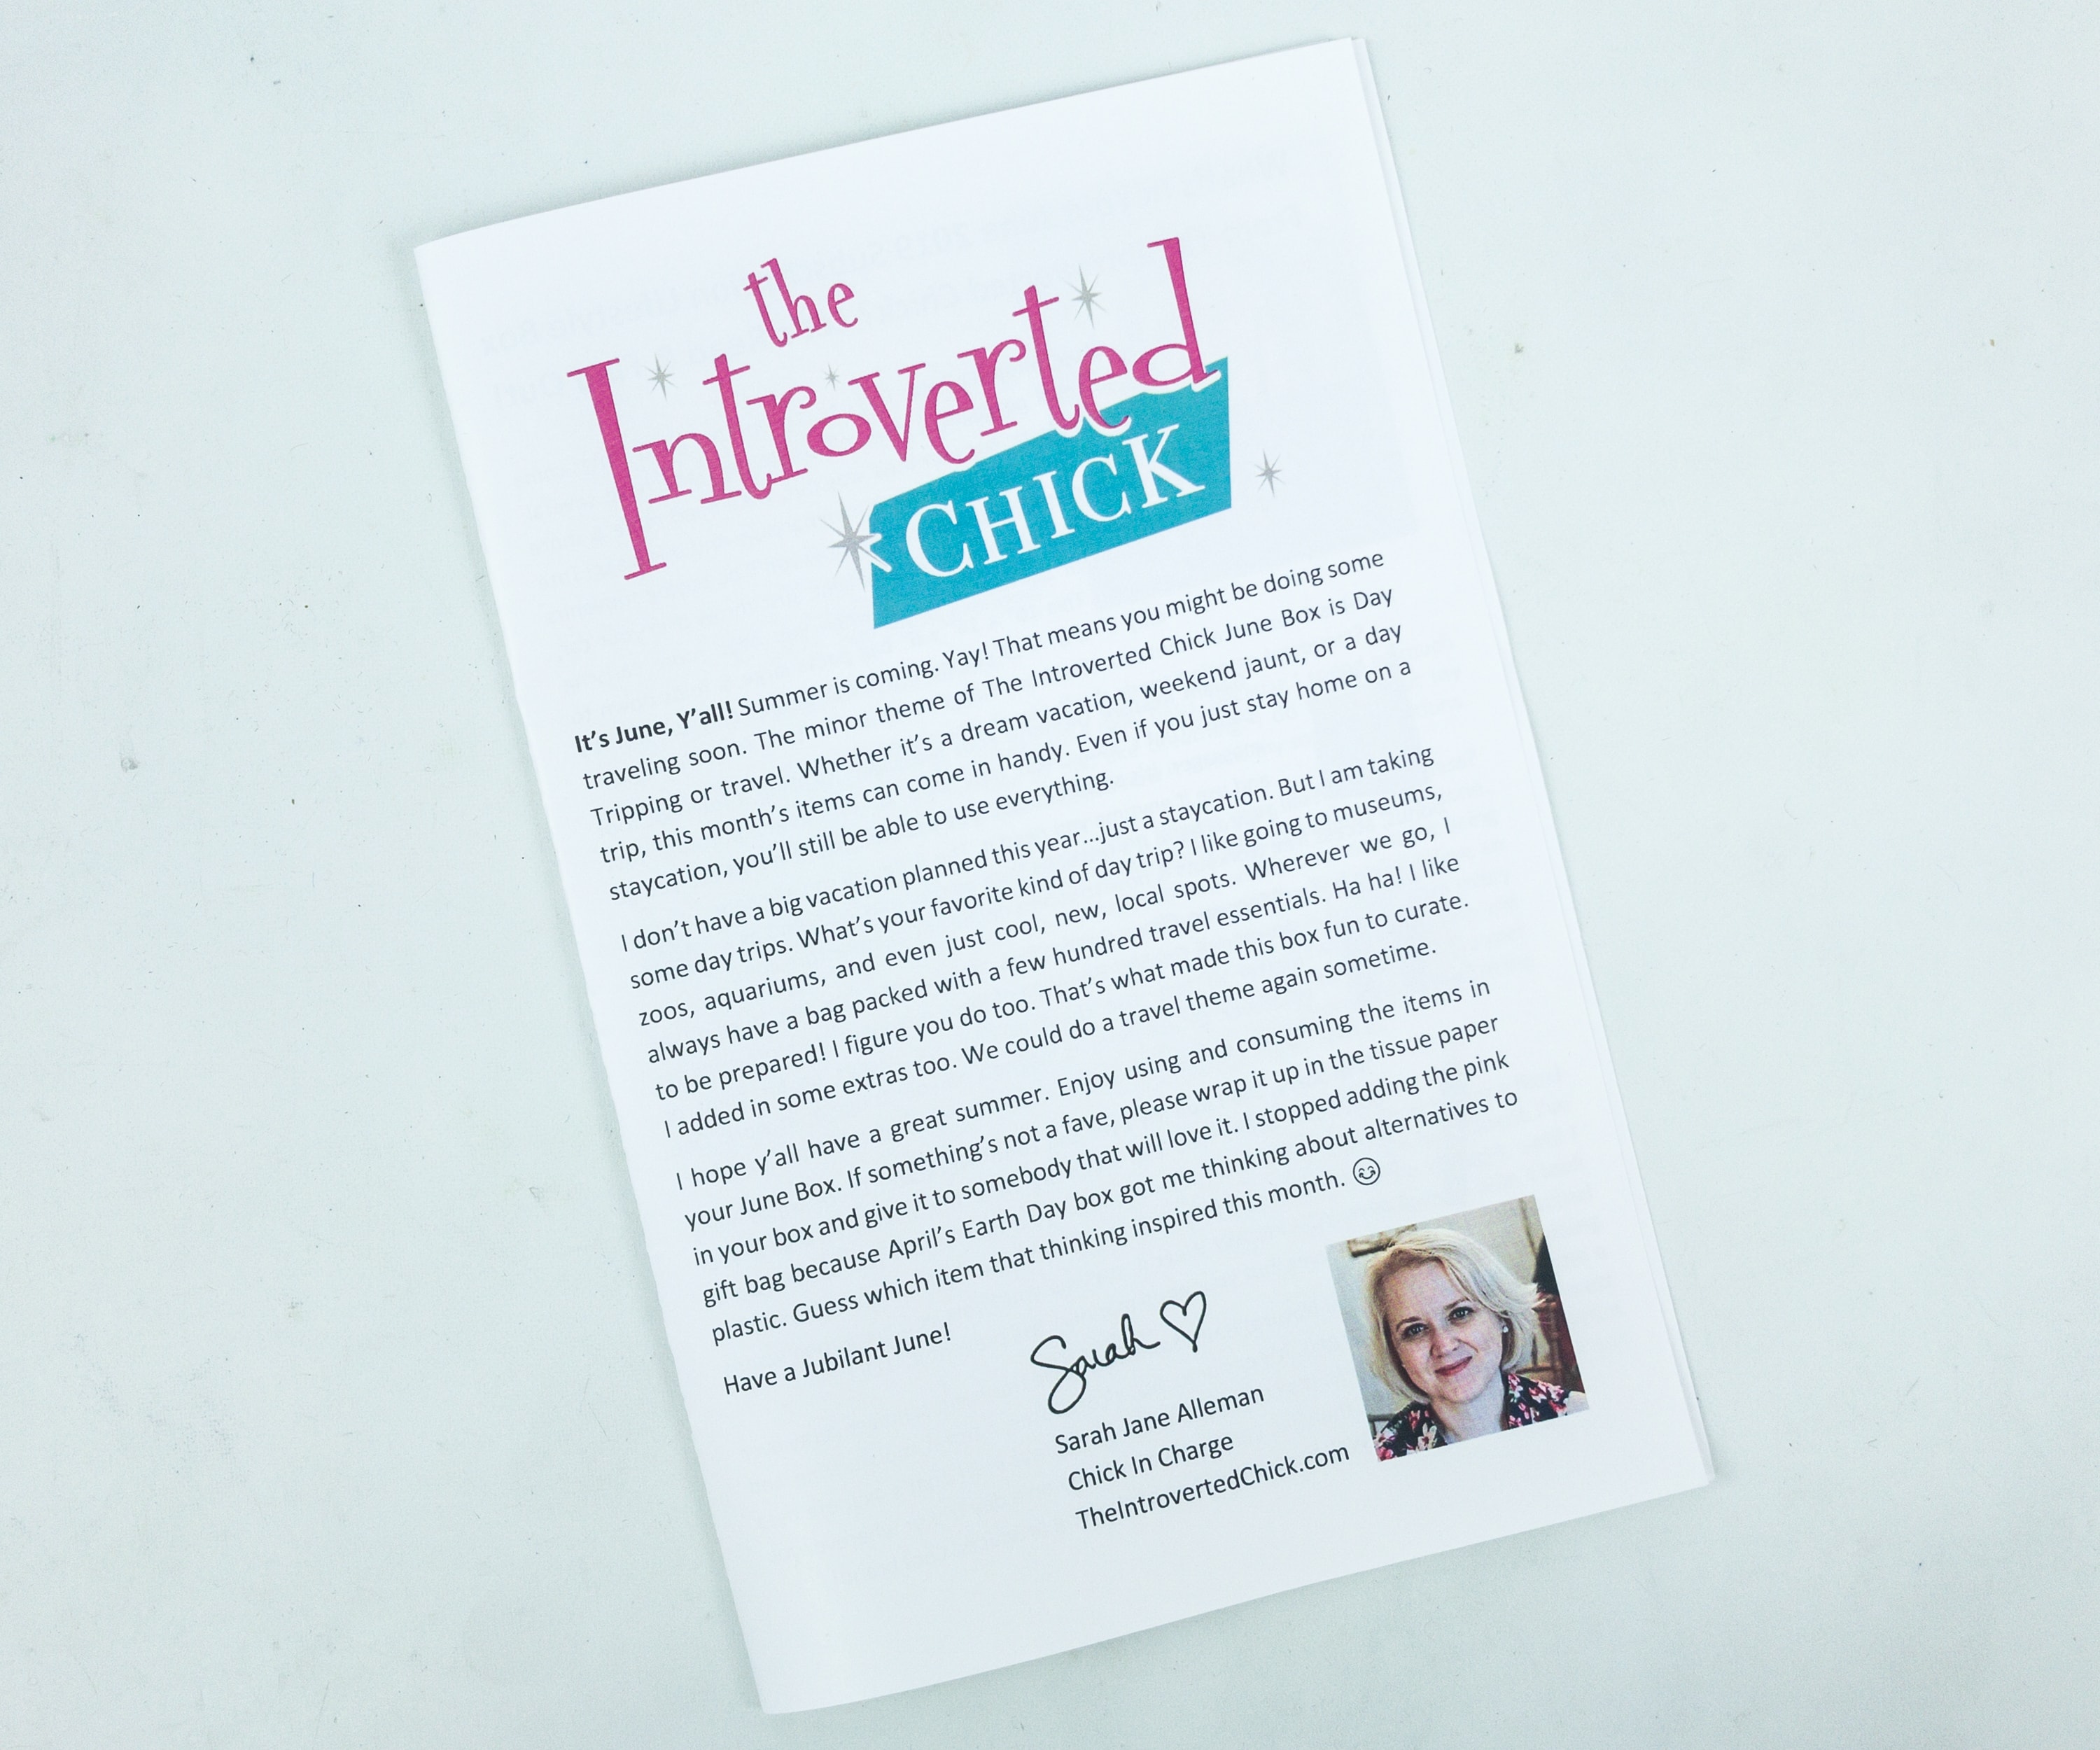 the
Introverted
CHICK
It's June, Y'all! Summer is coming. Yay! That means you might be doing some
traveling soon. The minor theme of The Introverted Chick June Box is Day
Tripping or travel. Whether it's a dream vacation, weekend jaunt, or a day
trip, this month's items can come in handy. Even if you just stay home on a
staycation, you'll still be able to use everything.
I don't have a big vacation planned this year...just a staycation. But I am taking
some day trips. What's your favorite kind of day trip? I like going to museums,
zoos, aquariums, and even just cool, new, local spots. Wherever we go, I
always have a bag packed with a few hundred travel essentials. Ha ha! I like
to be prepared! I figure you do too. That's what made this box fun to curate.
I added in some extras too. We could do a travel theme again sometime.
I hope y'all have a great summer. Enjoy using and consuming the items in
your June Box. If something's not a fave, please wrap it up in the tissue paper
in your box and give it to somebody that will love it. I stopped adding the pink
gift bag because April's Earth Day box got me thinking about alternatives to
plastic. Guess which item that thinking inspired this month. 😊
Have a Jubilant June!
Sarah ♡
Sarah Jane Alleman
Chick In Charge
TheIntrovertedChick.com